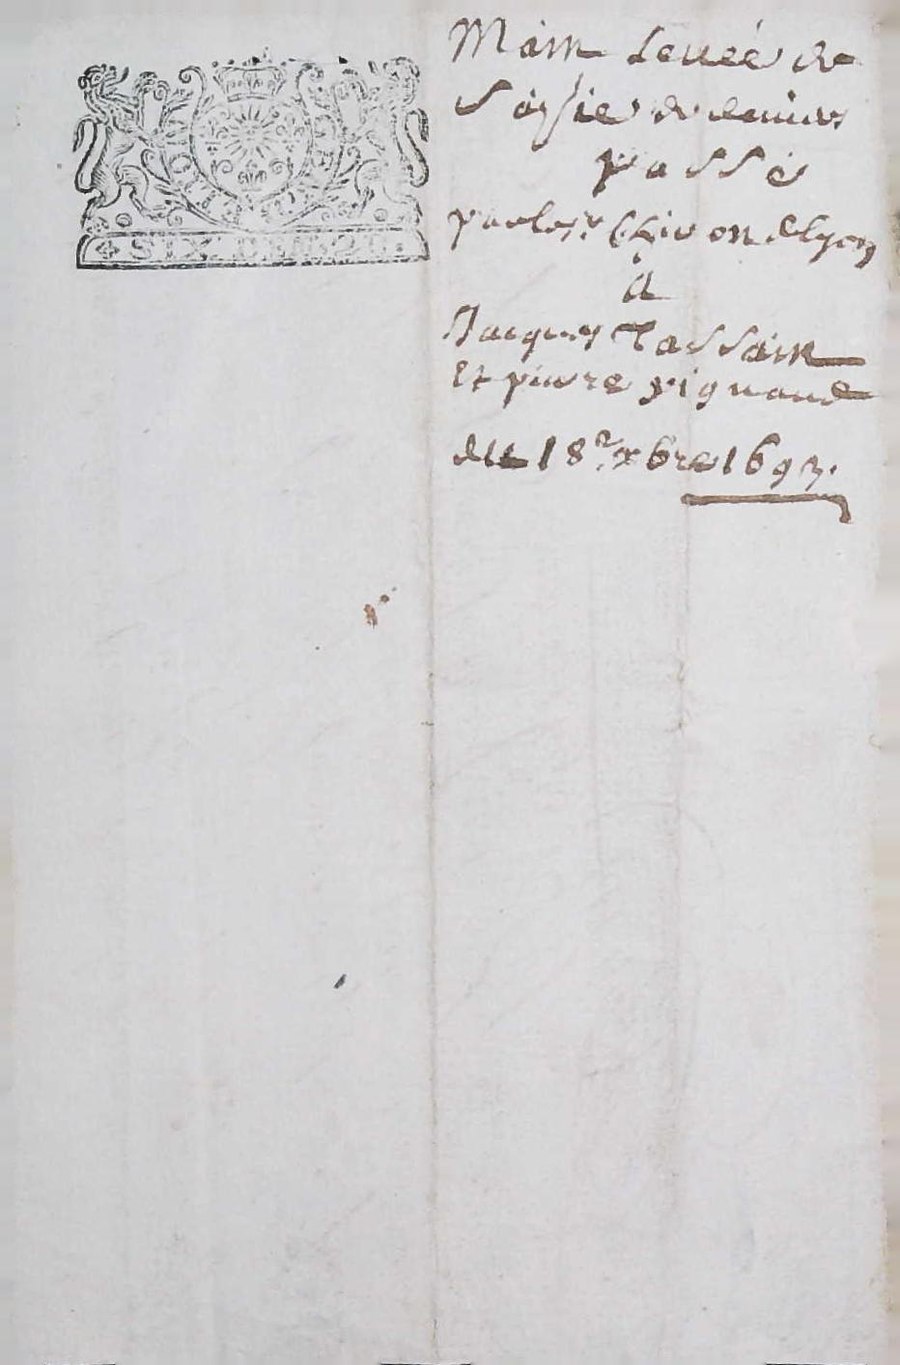 SIX DEN
Main levée de
Saisie de deniers
passé
par le sr Chivon de Lyon
a
Jacques Tassain
Et pierre pignaud
du 18e xbre 1693.